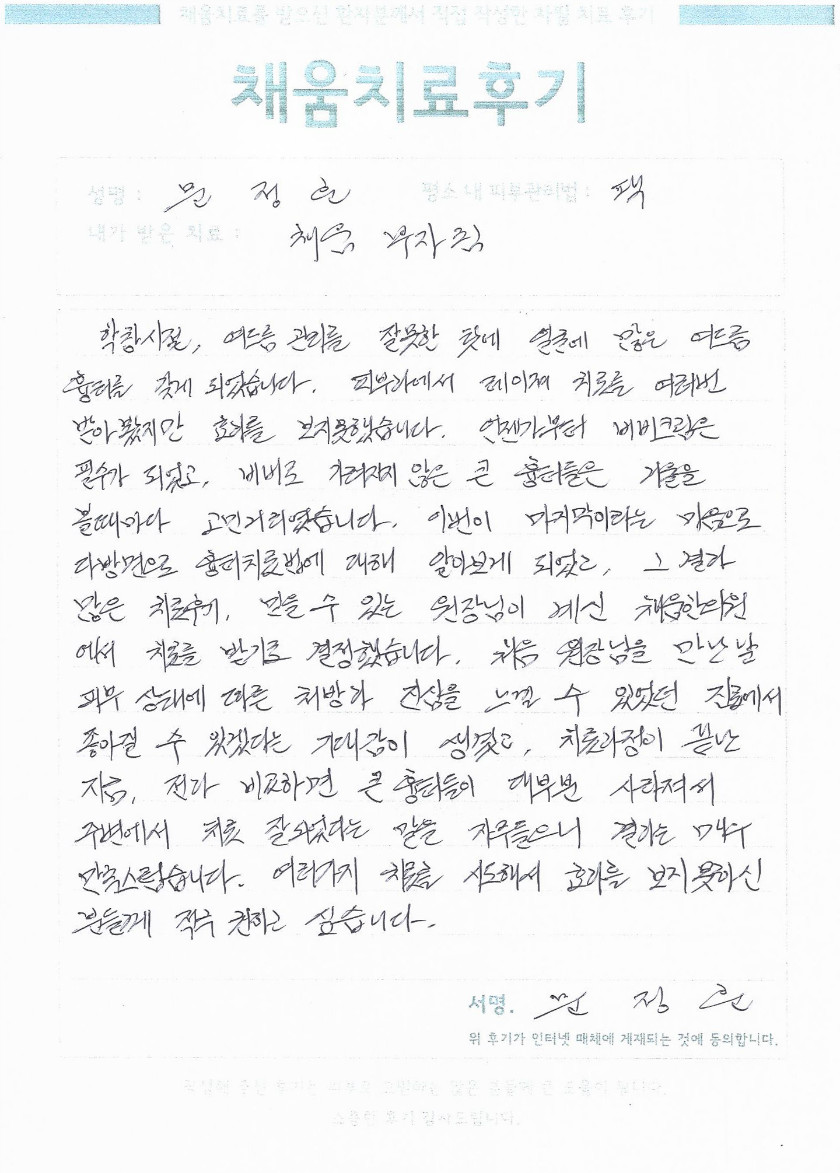 채움치료를 받으신 환자분께서 직접 작성한 자필 치료 후기
채움치료후기
성명 : 문 정 현 평소 내 피부관리법 : 팩
내가 받은 치료 : 채움
학창시절, 여드름 관리를 잘못한 탓에 얼굴에 많은 여드름
흉터를 갖게 되었습니다. 피부과에서 레이저 치료를 여러번
받아 봤지만 효과를 보지못했습니다. 언젠가부터 비비크림은
필수가 되었고, 비비로 가려지지 않은 큰 흉터들은 거울을
볼때마다 고민거리였습니다. 이번이 마지막이라는 마음으로
다방면으로 흉터치료법에 대해 알아보게 되었고, 그 결과
많은 치료후기, 믿을 수 있는 원장님이 계신 채움한의원
에서 치료를 받기로 결정했습니다. 처음 원장님을 만난 날
피부 상태에 따른 처방과 진심을 느낄 수 있었던 진료에서
좋아질 수 있겠다는 기대감이 생겼고, 치료과정이 끝난
지금, 전과 비교하면 큰 흉터들이 대부분 사라져서
주변에서 치료 잘되었다는 말을 자주들으니 결과는 매우
만족스럽습니다. 여러가지 치료를 시도해서 효과를 보지 못하신
분들께 적극 권하고 싶습니다.
서명. 문 정 현
위 후기가 인터넷 매체에 게재되는 것에 동의합니다.
소중한 후기 감사드립니다.